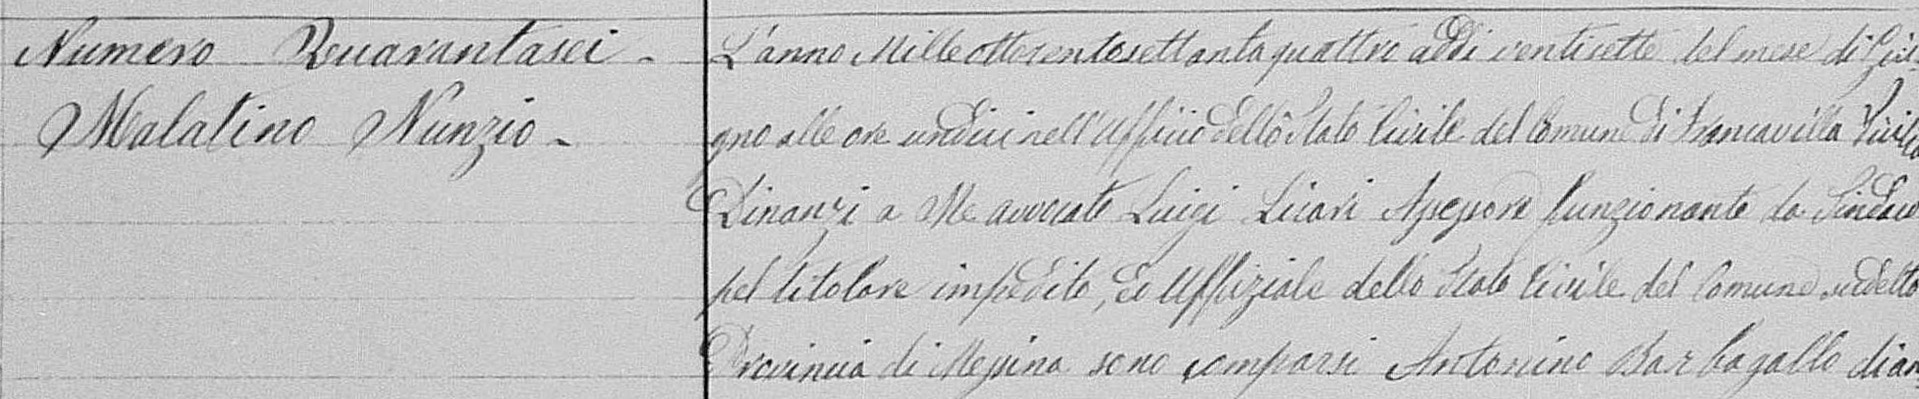 Numero Quarantasei -
Malatino Nunzio -
L'anno Mille ottocentosettantaquattro addi ventisette del mese di Giu-
gno alle ore undici nell'Ufficio dello Stato Civile del Comune di Francavilla Sicilia
Dinanzi a Me avvocato Luigi Licari Assessore funzionante da Sindaco
pel titolare impedito, ed Uffiziale dello Stato Civile del Comune sudetto
Provincia di Messina sono comparsi Antonino Barbagallo di an-